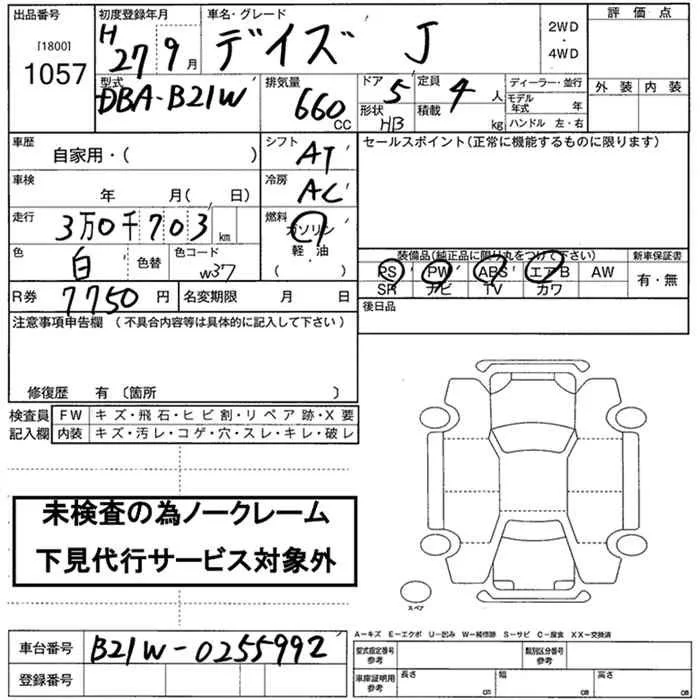 出品番号 初度登録年月 車名・グレード 評価点
[1800] H 27 9月 デイズ J 2WD・4WD
1057
型式 排気量 ドア 5 定員 4人 ディーラー・並行 外装 内装
DBA-B21W 660CC 形状 HB 積載 kg モデル年式 年
ハンドル 左・右
車歴 自家用・( ) シフト AT セールスポイント(正常に機能するものに限ります)
車検 年 月( 日) 冷房 AC
走行 3万0千703km 燃料 ガソリン・軽油
( )
色 白 色替 色コード W37 装備品(純正品に限り丸をつけて下さい) 新車保証書
PS PW ABS エアB AW 有・無
SR ナビ TV カワ
R券 7750円 名変期限 月 日 後日品
注意事項申告欄 (不具合内容等は具体的に記入して下さい)
修復歴 有 〔箇所 〕
検査員 FW キズ・飛石・ヒビ割・リペア跡・X要
記入欄 内装 キズ・汚レ・コゲ・穴・スレ・キレ・破レ
未検査の為ノークレーム
下見代行サービス対象外
スペア
A-キズ E-エクボ U-凹み W-補修跡 S-サビ C-腐食 XX-交換済
車台番号 B21W-0255992 型式指定番号 参考 類別区分番号 参考
登録番号 車庫証明用 参考 長さ cm 幅 cm 高さ cm